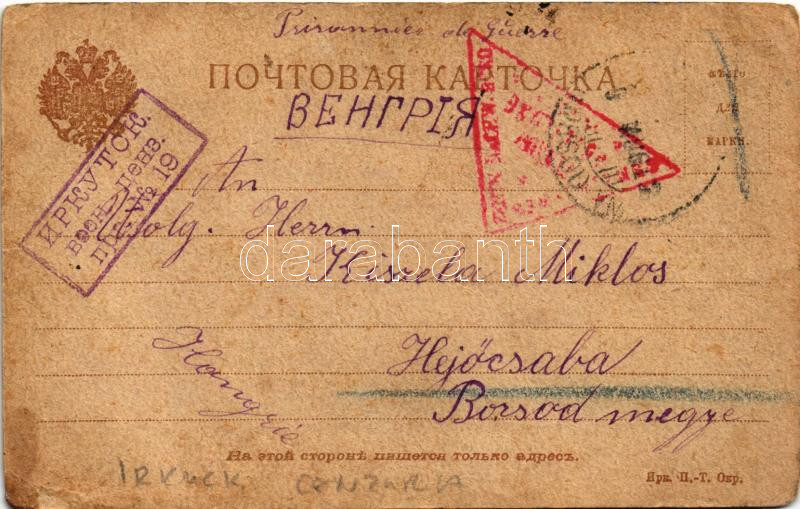 Prisonnier de Guerre
ПОЧТОВАЯ КАРТОЧКА
МѢСТО
ДЛЯ
МАРКИ.
ВЕНГРІЯ
ИРКУТСК.
воен. ценз.
№ 19
An
Herrn
Kiszela Miklos
Hejőcsaba
Borsod megye
Hongrie
На этой сторонѣ пишется только адресъ.
Ирк. П.-Т. Окр.
IRKUCK CENZURA
darabanth